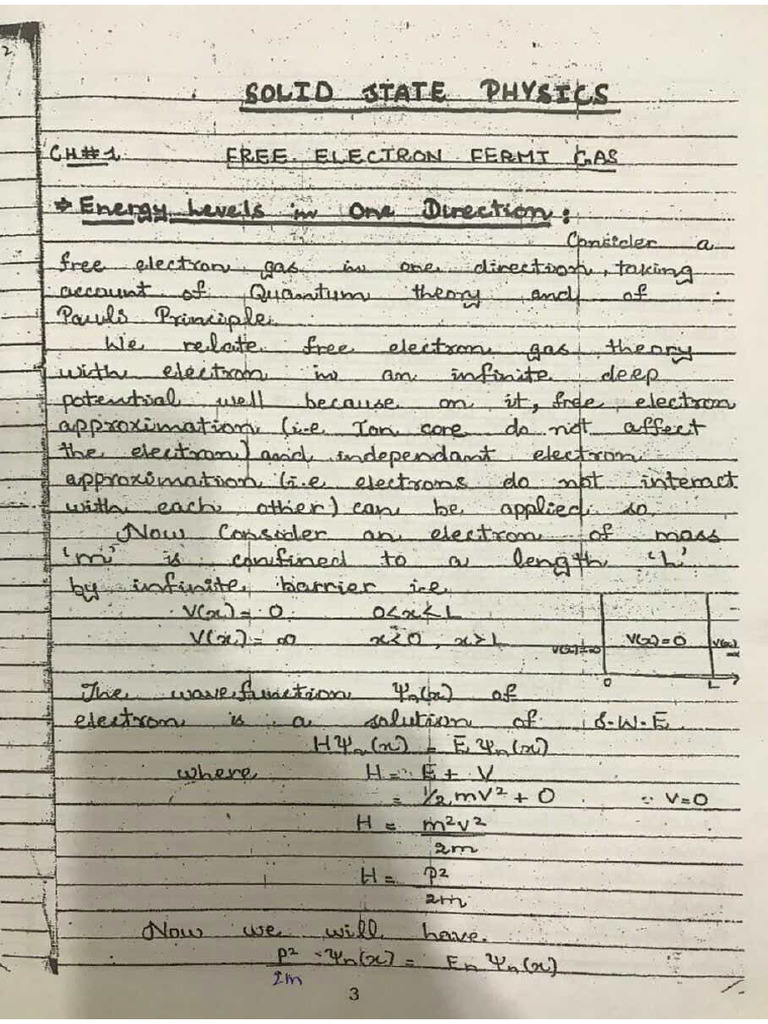 2
SOLID STATE PHYSICS
CH#1 FREE ELECTRON FERMI GAS
⇒ Energy Levels in One Direction:
Consider a
free electron gas in one direction, taking
account of Quantum theory and of
Pauls Principle.
We relate free electron gas theory
with electron in an infinite deep
potential well because on it, free electron
approximation (i.e Ion core do not affect
the electron) and independant electron
approximation (i.e electrons do not interact
with each other) can be applied so
Now Consider an electron of mass
'm' is confined to a length 'L'
by infinite barrier i.e
V(x) = 0 0<x<L
V(x) = ∞ x≤0, x>L
V(x)=∞ V(x)=0 V(x)
0 L
The wavefunction Ψn(x) of
electron is a solution of S.W.E
HΨn(x) = E Ψn(x)
where H = E + V
= 1/2 mV² + 0 ∵ V=0
H = m²v²
2m
H = P²
2m
Now we will have.
P² Ψn(x) = En Ψn(x)
2m
3